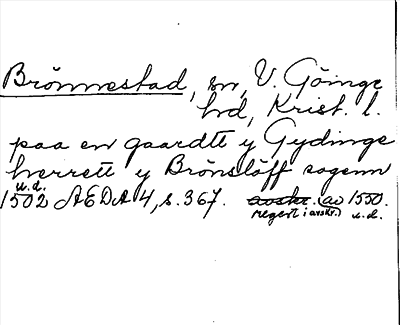 Brönnestad, sn, V. Göinge
hd, Krist. l.
paa en gaardtt y Gydinge
herrett y Brönslöff sogenn
u.d.
1502 AEDA 4, s. 367. avskr. (av 1550.
regest i avskr.) u.d.